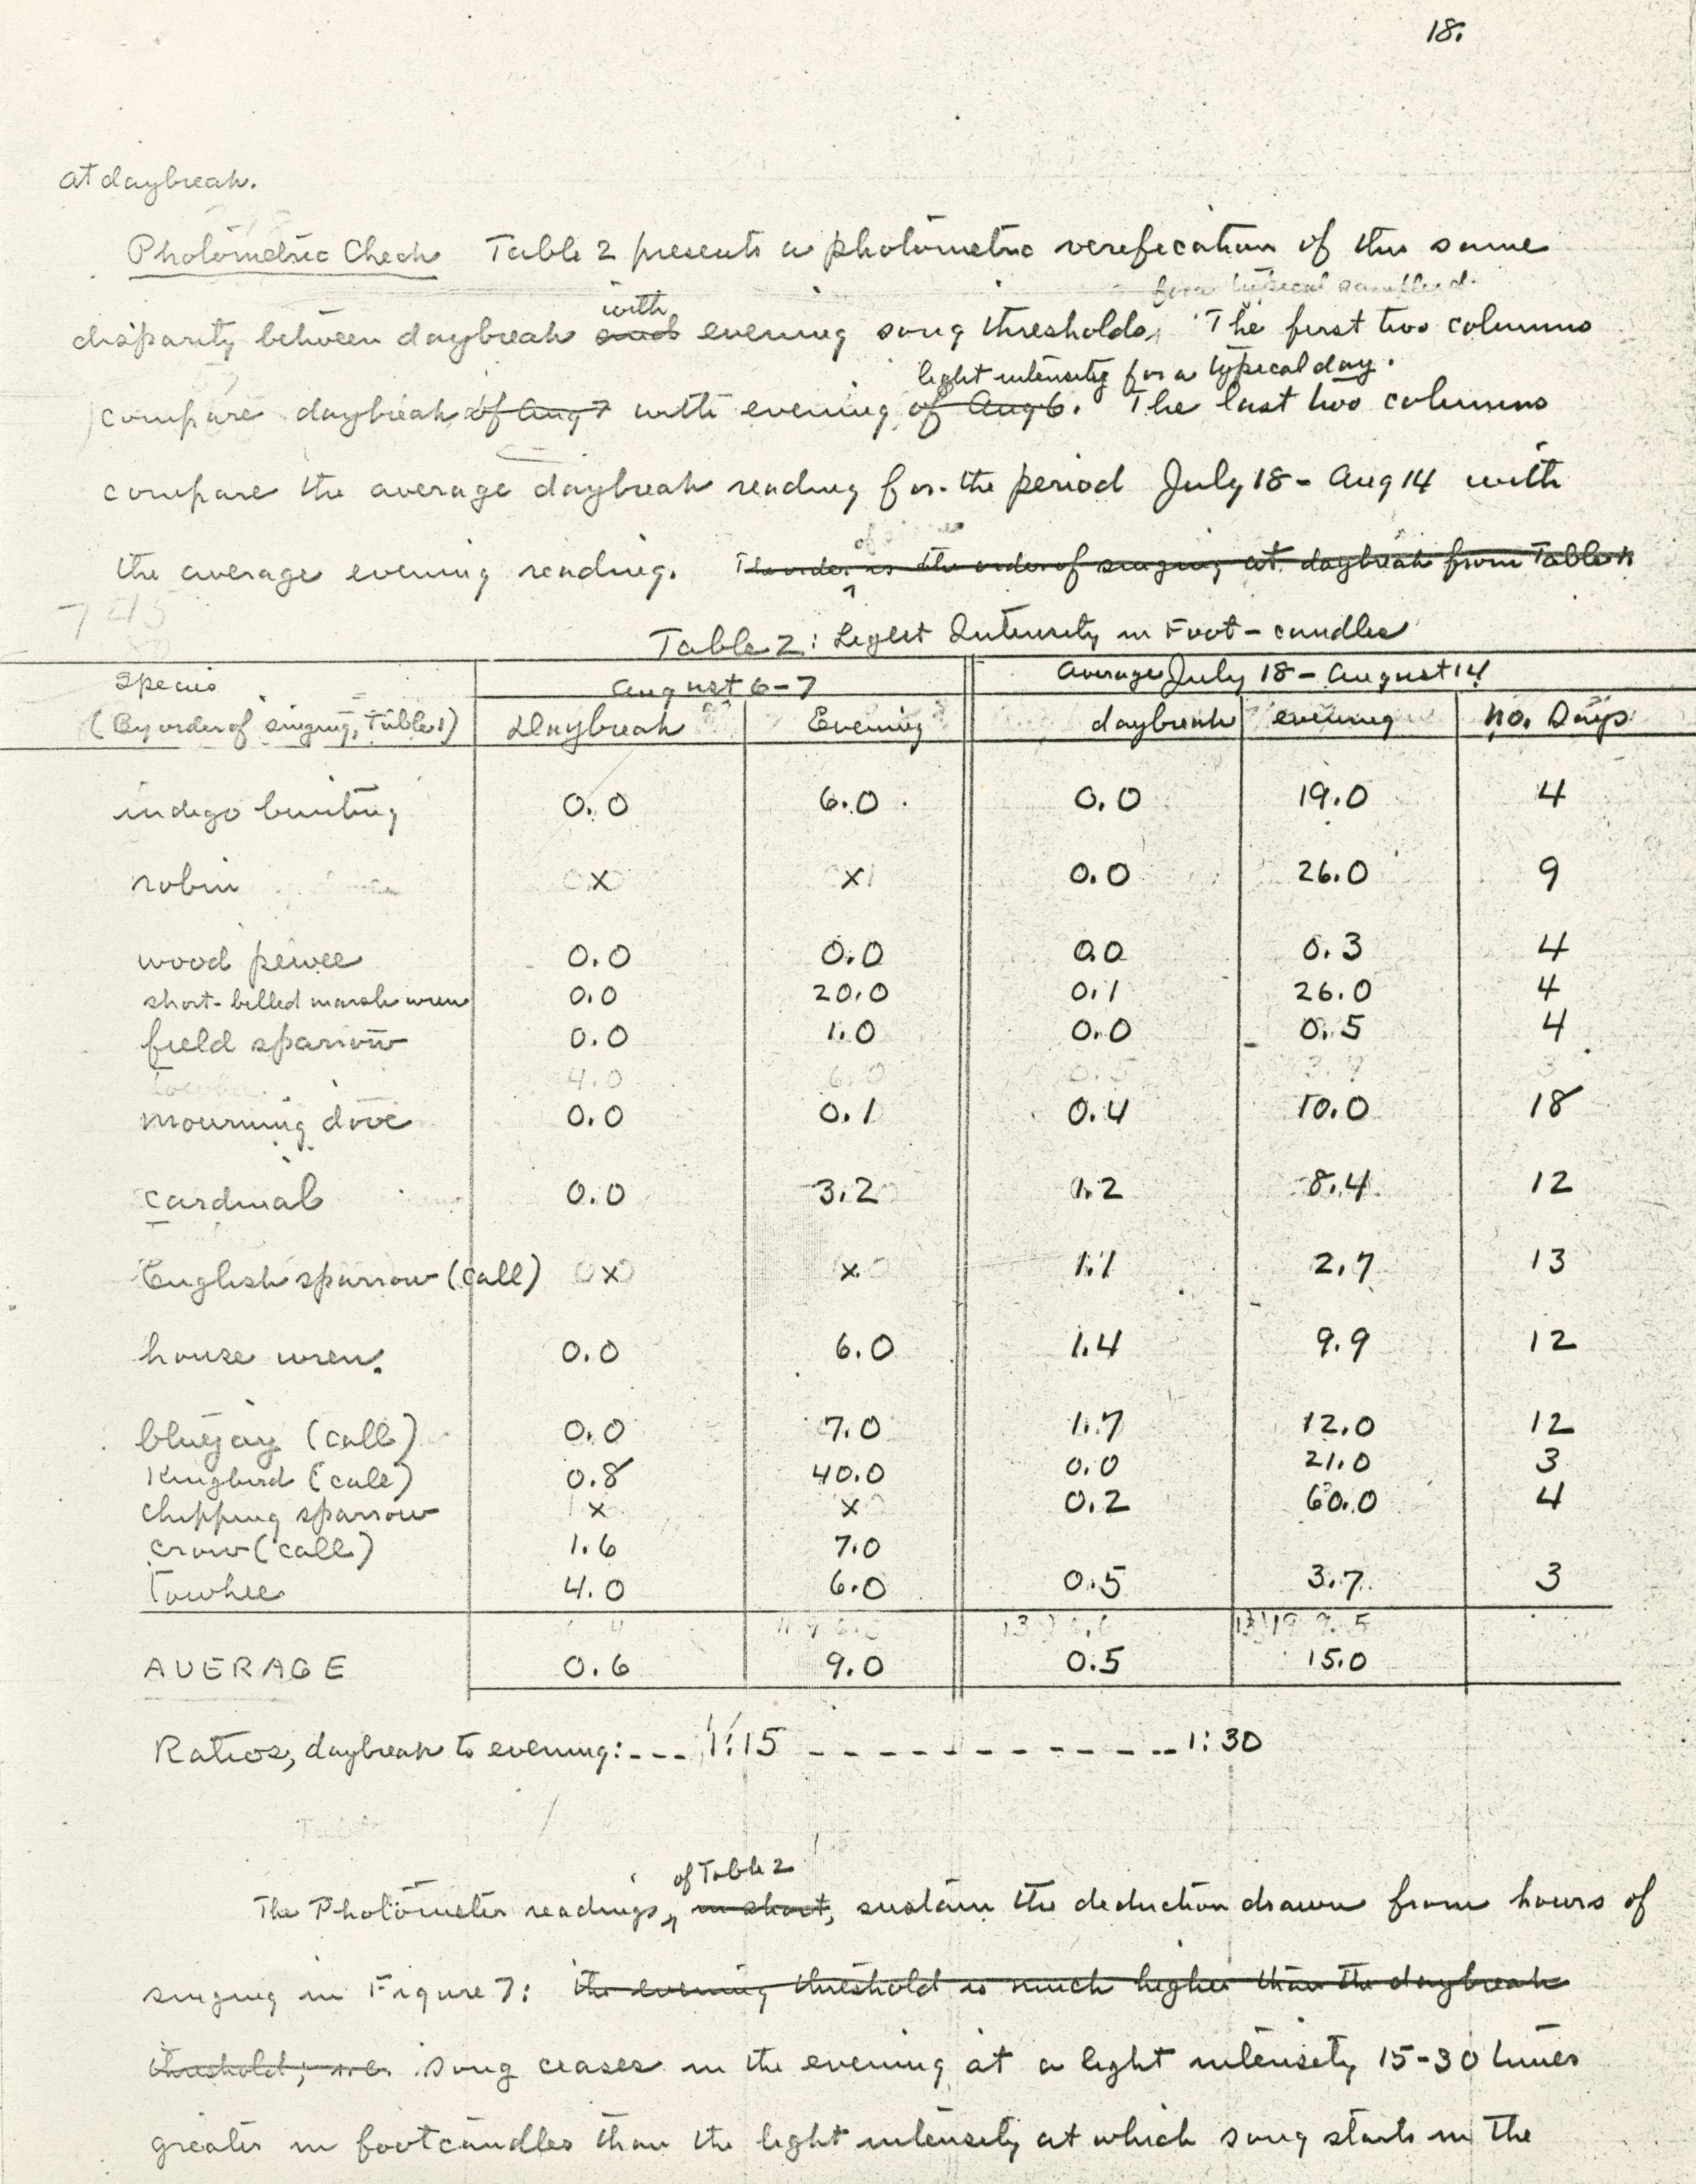 18.
at daybreak.
Photometric Check Table 2 presents a photometric verefication of the same
with
disparity between daybreak and evening song thresholds. The first two columns
light intensity for a typical day.
compare daybreak of Aug 7 with evening of Aug 6. The last two columns
compare the average daybreak reading for the period July 18 - Aug 14 with
of
the average evening reading. The order is the order of singing at daybreak from Table 1
Table 2: Light Intensity in Foot-candles
Species August 6-7 Average July 18 - August 14
(By order of singing, Table 1) Daybreak Evening daybreak evening no. Days
indigo bunting 0.0 6.0 0.0 19.0 4
robin x x 0.0 26.0 9
wood pewee 0.0 0.0 0.0 0.3 4
short-billed marsh wren 0.0 20.0 0.1 26.0 4
field sparrow 0.0 1.0 0.0 0.5 4
4.0 6.0 0.5 3.7 3
mourning dove 0.0 0.1 0.4 10.0 18
cardinal 0.0 3.2 1.2 8.4 12
English sparrow (call) x x 1.1 2.7 13
house wren. 0.0 6.0 1.4 9.9 12
bluejay (call) 0.0 7.0 1.7 12.0 12
Kingbird (call) 0.8 40.0 0.0 21.0 3
chipping sparrow x x 0.2 60.0 4
crow (call) 1.6 7.0
Towhee 4.0 6.0 0.5 3.7 3
AVERAGE 0.6 9.0 0.5 15.0
Ratios, daybreak to evening: --- 1:15 ------------ 1:30
of Table 2
The Photometer readings, in short, sustain the deduction drawn from hours of
singing in Figure 7: the evening threshold is much higher than the daybreak
threshold; song ceases in the evening at a light intensity 15-30 times
greater in footcandles than the light intensity at which song starts in the